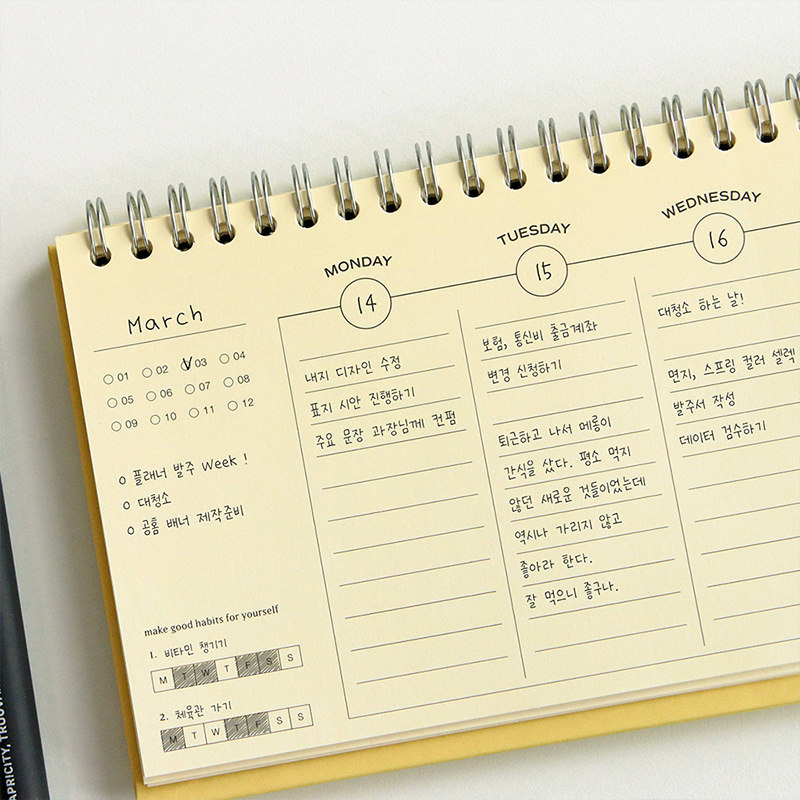 March
01 02 03 04
05 06 07 08
09 10 11 12
플래너 발주 Week !
대청소
공홈 배너 제작준비
make good habits for yourself
1. 비타민 챙기기
M T W T F S S
2. 체육관 가기
M T W T F S S
MONDAY
14
내지 디자인 수정
표지 시안 진행하기
주요 문장 과장님께 컨펌
TUESDAY
15
보험, 통신비 출금계좌
변경 신청하기
퇴근하고 나서 메롱이
간식을 샀다. 평소 먹지
않던 새로운 것들이었는데
역시나 가리지 않고
좋아라 한다.
잘 먹으니 좋구나.
WEDNESDAY
16
대청소 하는 날!
면지, 스프링 컬러 셀렉
발주서 작성
데이터 검수하기
APRICITY, TROUVA